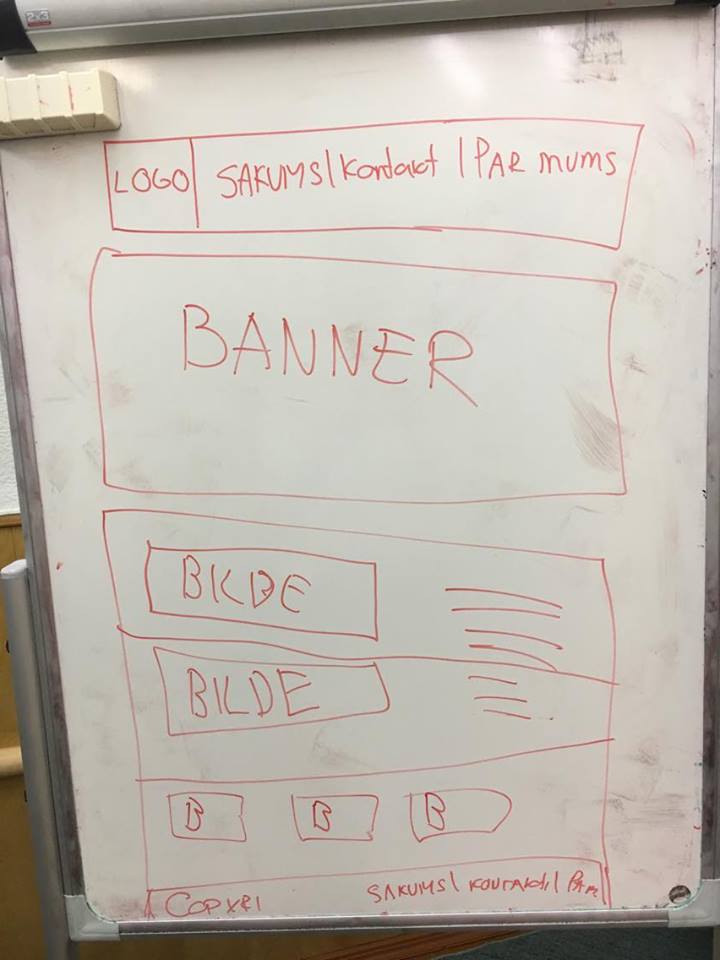 LOGO SAKUMS | Kontakt | PAR MUMS
BANNER
BILDE
BILDE
B B B
COPYRI SAKUMS | KONTAKTI | PAR